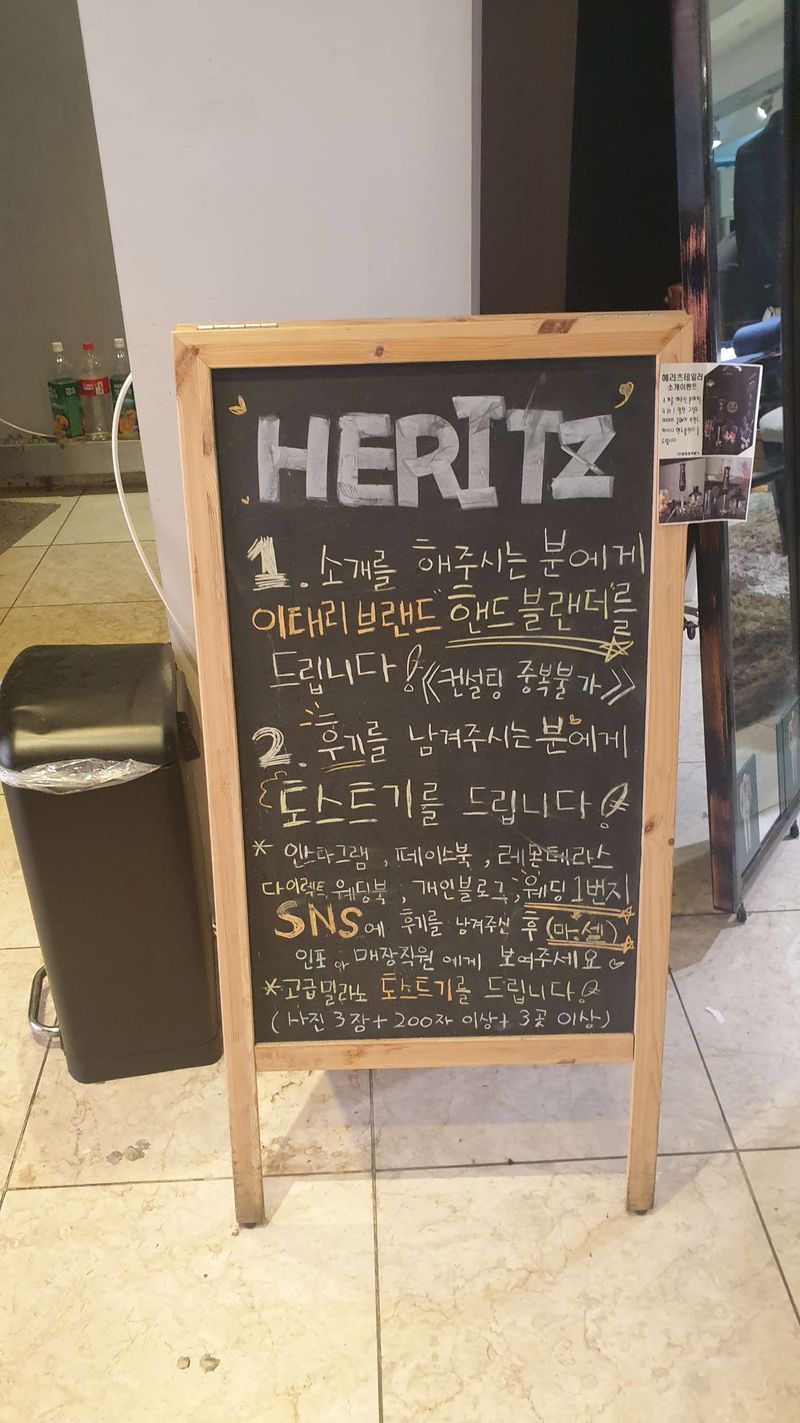 HERITZ
1. 소개를 해주시는 분에게
이태리 브랜드 "핸드블랜더"를
드립니다! 《컨설팅 중복불가》
2. 후기를 남겨주시는 분에게
토스트기를 드립니다!
* 인스타그램, 페이스북, 레몬테라스
다이렉트 웨딩북, 개인블로그, 웨딩1번지
SNS에 후기를 남겨주신 후 (마.셀)
인포 or 매장직원에게 보여주세요
*고급밀라노 토스트기를 드립니다!
(사진 3장 + 200자 이상 + 3곳 이상)
헤리츠테일러
소개이벤트